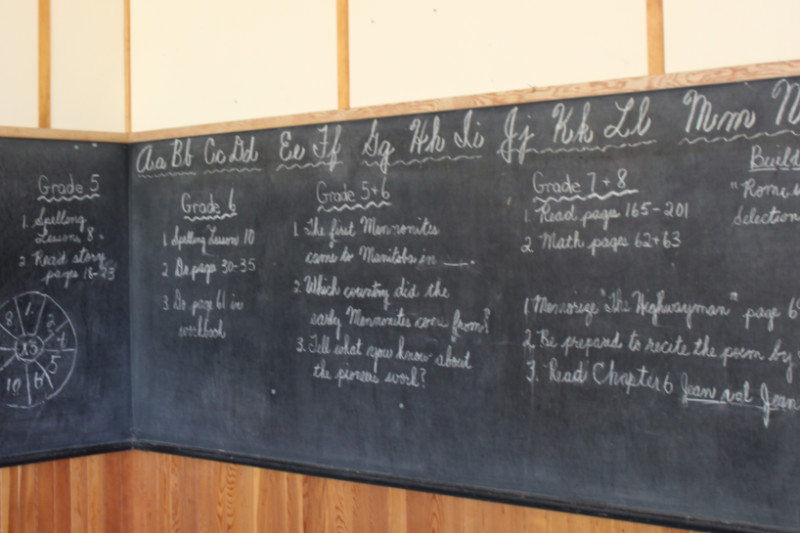 Aa Bb Cc Dd Ee Ff Gg Hh Ii Jj Kk Ll Mm N
Grade 5
1. Spelling
Lesson 8.
2. Read story
pages 18-23
8 1 x5 4 5 6 10
Grade 6
1 Spelling Lesson 10
2 Do pages 30-35
3 Do page 61 in
workbook
Grade 5+6
1. The first Mennonites
came to Manitoba in ____.
2. Which country did the
early Mennonites come from?
3. Tell what you know about
the pioneers work?
Grade 7+8
1. Read pages 165-201
2 Math pages 62+63
1. Memorize "The Highwayman" page 6
2. Be prepared to recite the poem by
3. Read Chapter 6 Jean val Jean
Build
"Rome
selection